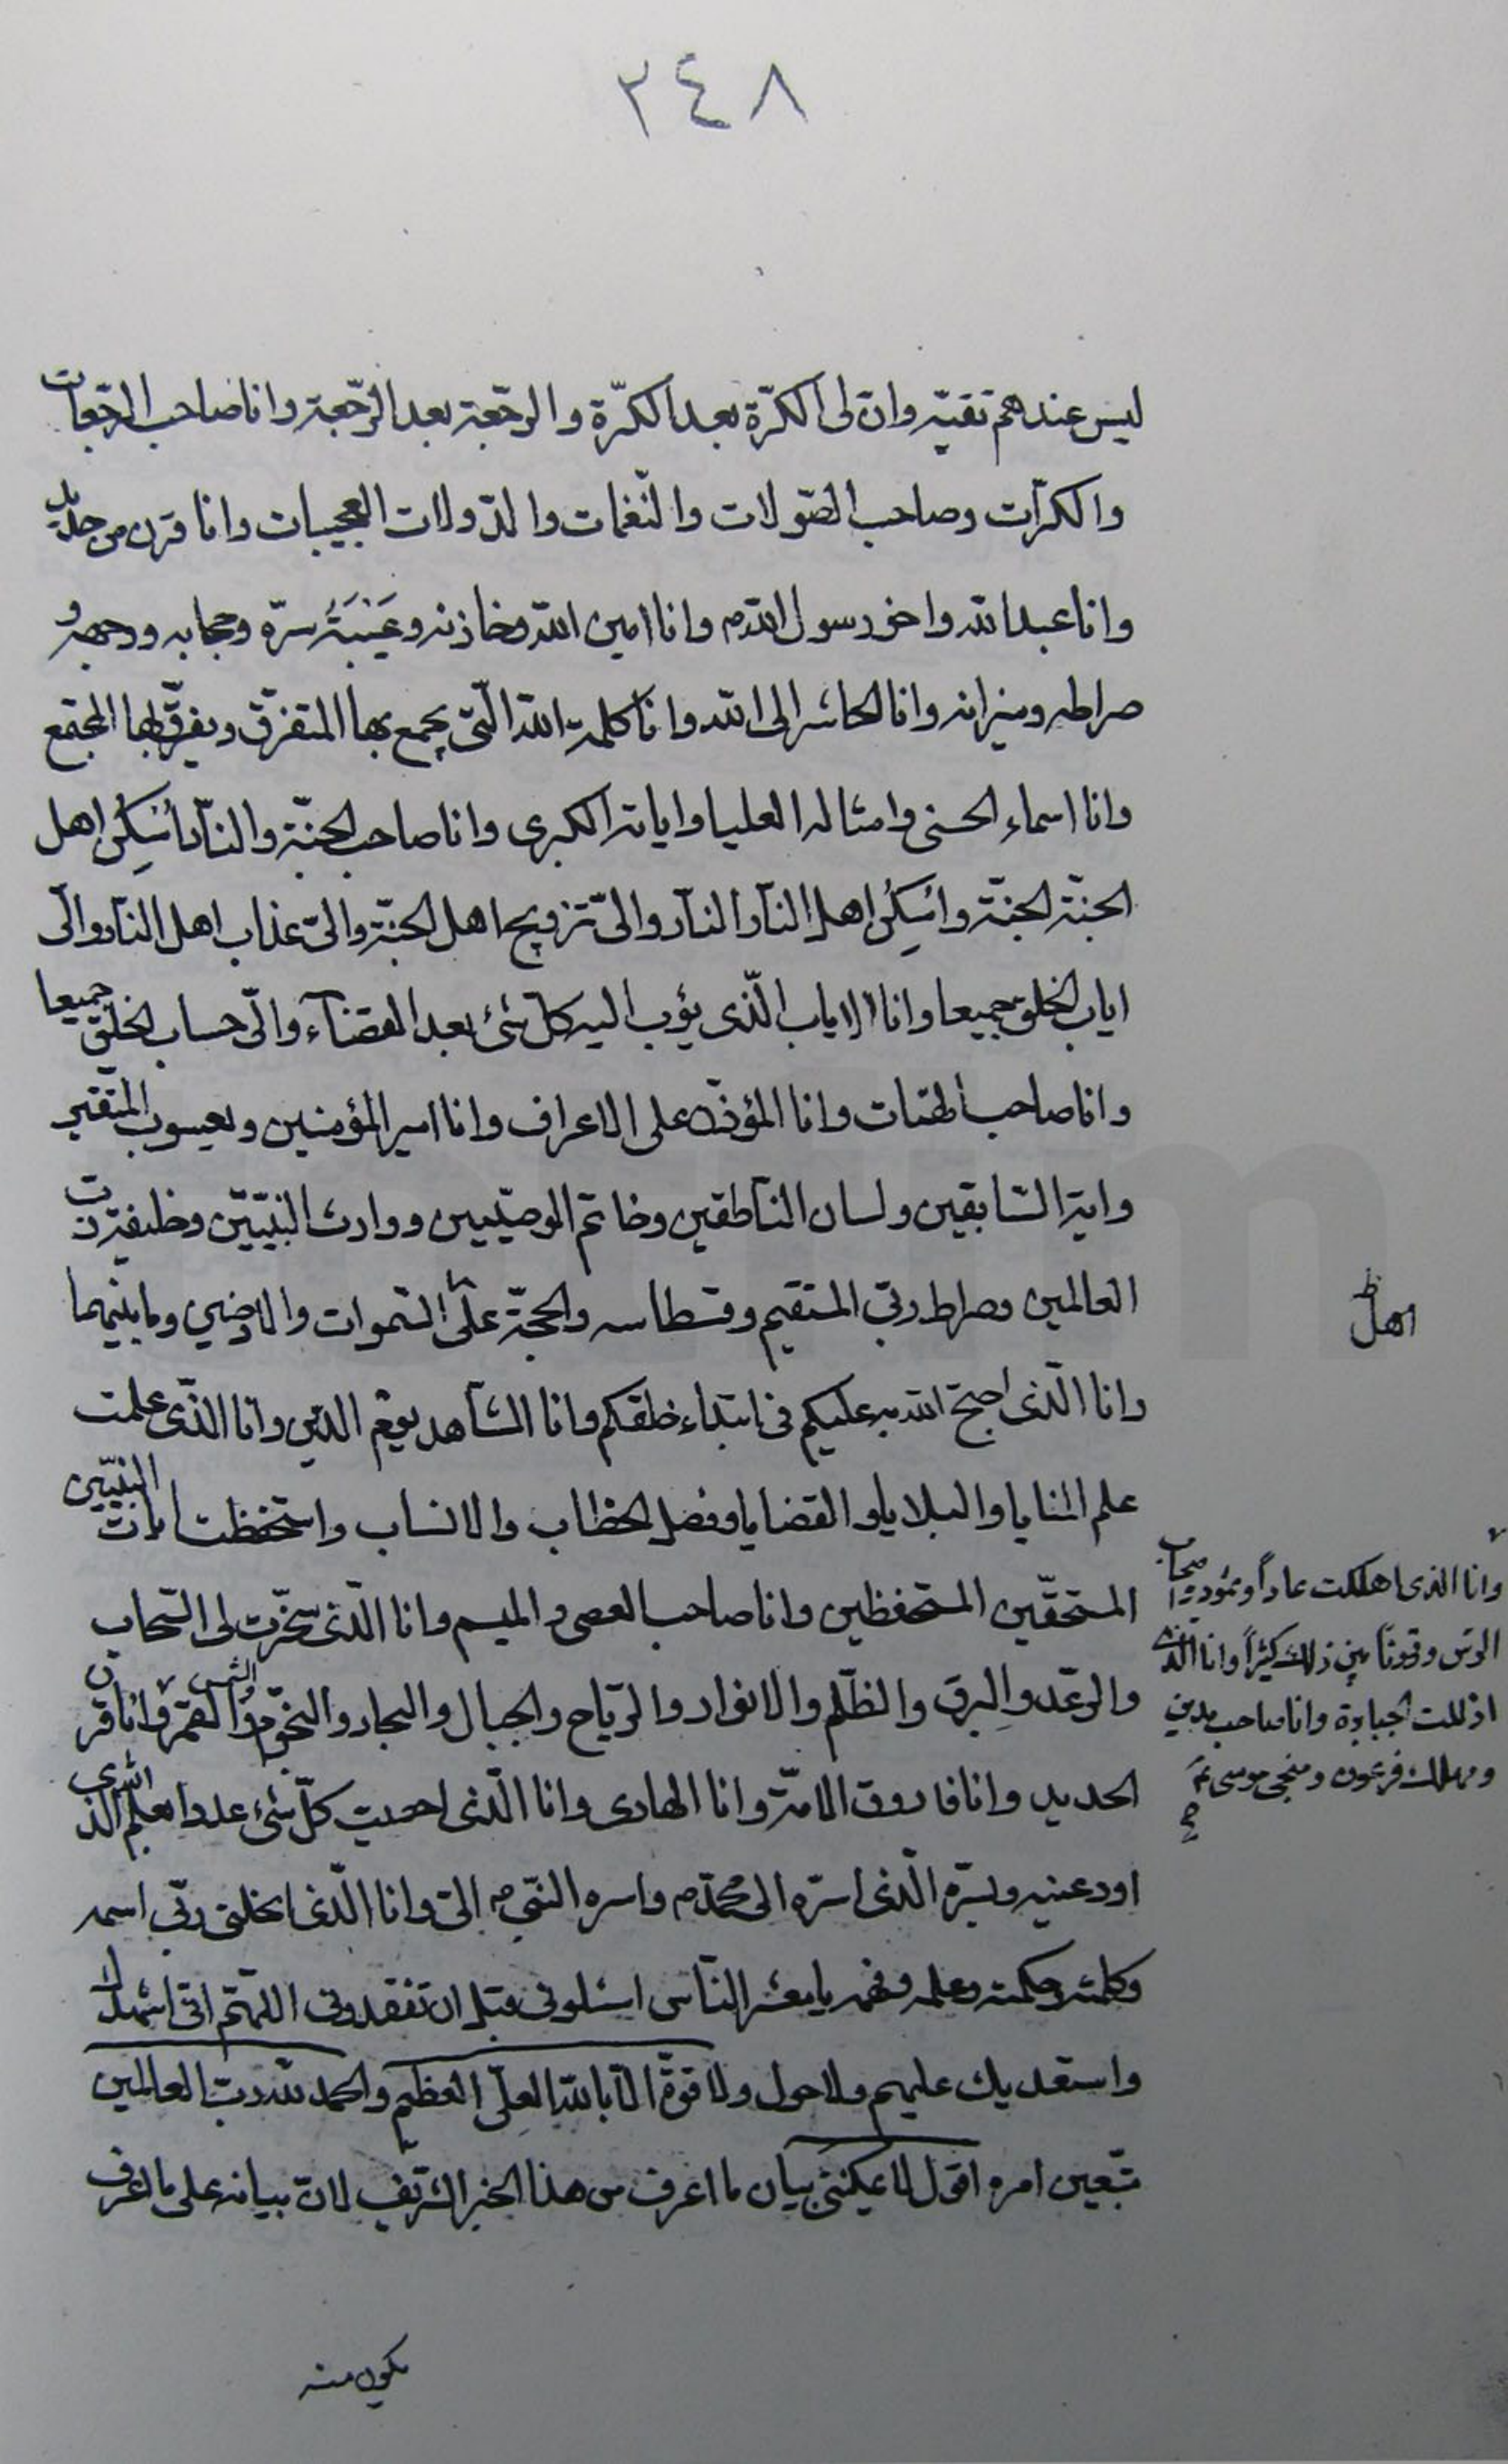 ٢٤٨
ليس عندهم تقيّه وانّ لى الكرّة بعد الكرّة والرّجعة بعد الرّجعة وانا صاحب الرّجعات
والكرّات وصاحب الصّولات والنّغمات والدّولات العجيبات وانا قرن من حديد
وانا عبد الله واخو رسول الله ص وانا امين الله وخازنه وعَيْبَةُ سرّه وحجابه ووجهه و
صراطه وميزانه وانا الحاشر الى الله وانا كلمة الله الّتى يجمع بها المتفرّق ويفرّق بها المجتمع
وانا اسماء الحسنى وامثاله العليا واياته الكبرى وانا صاحب الجنّة والنّار اُسَكِنُ اهل
الجنّة الجنّة واُسَكِنُ اهل النّار النّار والىّ تزويج اهل الجنّة والىّ عذاب اهل النّار والىّ
اياب الخلق جميعا وانا الاياب الّذى يؤب اليه كلّ شئ بعد القضآء والىّ حساب الخلق جميعا
وانا صاحب الهنات وانا المؤذّن على الاعراف وانا امير المؤمنين ويعسوب المتّقين
واية السّابقين ولسان النّاطقين وخاتم الوصيّين ووارث النبيّين وخليفة ربّ
العالمين وصراط ربّى المستقيم وقسطاسه والحجّة على السّموات والارضين وما بينهما
اهل ظ
وانا الّذى احتجّ الله به عليكم فى ابتداء خلقكم وانا الشّاهد يوم الدّين وانا الّذى علمت
علم المنايا والبلايا والقضايا وفصل الخطاب والانساب واستحفظت ايات النبيّين
المستحقّين المستحفظين وانا صاحب العصى والميسم وانا الّذى سخّرت لى السّحاب
والرّعد والبرق والظّلم والانوار والرّياح والجبال والبحار والنّجوم والشمس والقمر وانا قرن
وانا الذى اهلكت عاداً وثمود واصحاب
الرس وقرونا بين ذلك كثيراً وانا الذى
اذللت الجبابرة وانا صاحب مدين
ومهلك فرعون ومنجى موسى ع
الحديد وانا فاروق الامّة وانا الهادى وانا الّذى احصيت كلّ شئ عددا بعلم الله الذى
اودعنيه وبسرّه الّذى اسرّه الى محمّد ص واسره النّبى ص الىّ وانا الّذى انحلنى ربّى اسمه
وكلمته وحكمته وعلمه وفهمه يا معشر النّاس اسئلونى قبل ان تفقدونى اللّهمّ انّى اشهدك
واستعديك عليهم ولا حول ولا قوّة الّا بالله العلىّ العظيم والحمد لله ربّ العالمين
متّبعين امره اقول لا يمكننى بيان ما اعرف من هذا الخبر الشّريف لانّ بيانه على ما اعرف
يكون منه